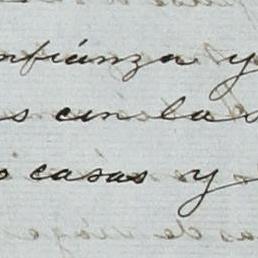 nfianza y
s con la
o casas y